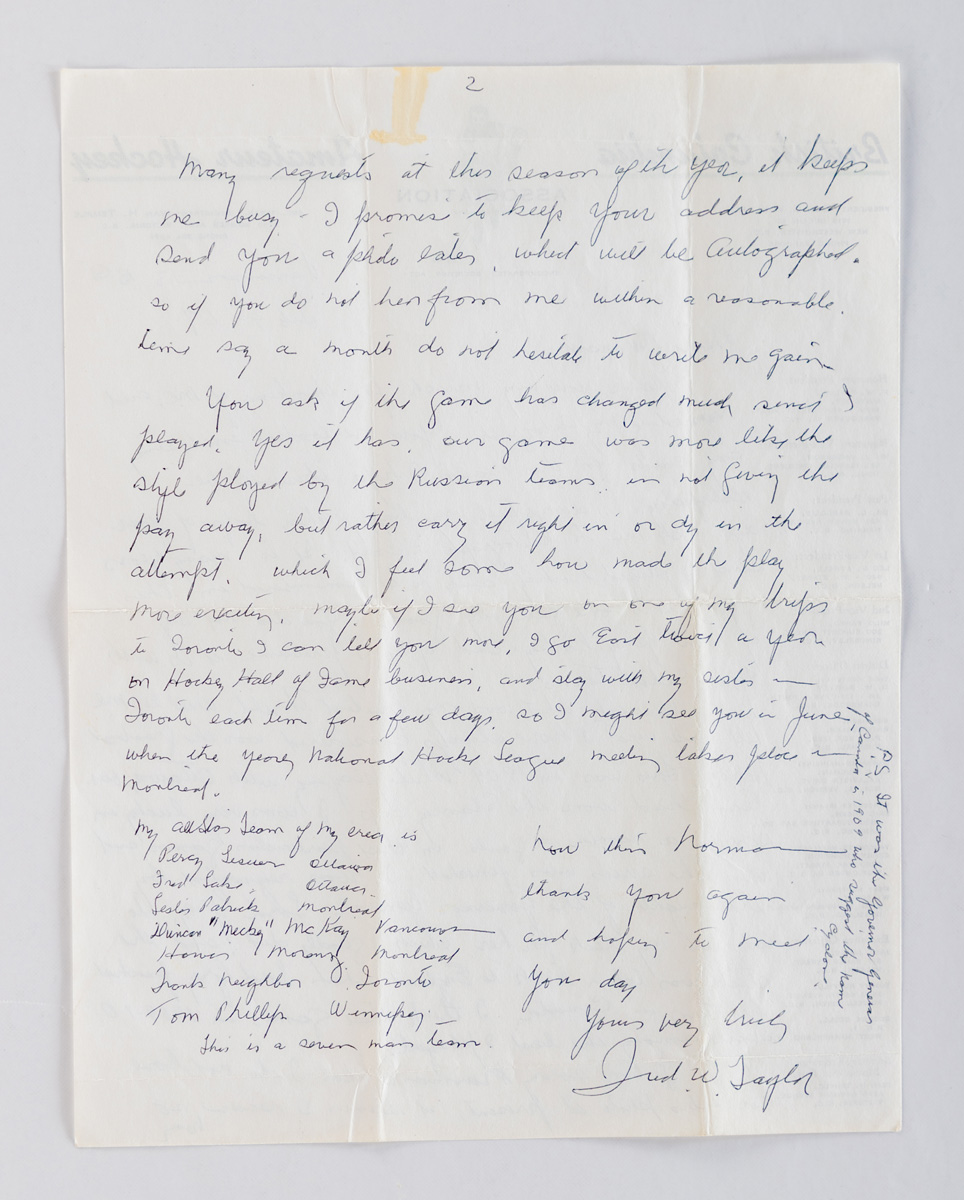 2
Many requests at this season of th year, it keeps
me busy - I promise to keep your address and
send you a photo later, which will be Autographed.
so if you do not hear from me within a reasonable.
time say a month do not hesitate to write me gain
You ask if the game has changed much since I
played. Yes it has, our game was more like the
style played by the Russian teams, in not giving the
pay away, but rather carry it right in or dy in the
attempt. which I feel some how made the play
more exciting, maybe if I see you on one of my trips
to Toronto I can tell you more, I go East twice a year
on Hockey Hall of Fame business, and stay with my sister in
Toronto each time for a few days, so I might see you in June,
when the yearly National Hockey League meeting takes place in
Montreal.
My all Star Team of my area is
Percy Lesueur Ottawa
Fred Lake, Ottawa.
Lester Patrick Montreal
Duncan "Mickey" McKay Vancouver
Howie Morenz Montreal
Frank Neighbor Toronto
Tom Phillips Winnipeg.
This is a seven man team.
now then Norman
thank you again
and hoping to meet
you day
Yours very truly
Fred. W. Taylor
P.S. It was the Govenor General
of Canada in 1909 who suggest the name
Cyclone.
British Columbia Amateur Hockey
ASSOCIATION